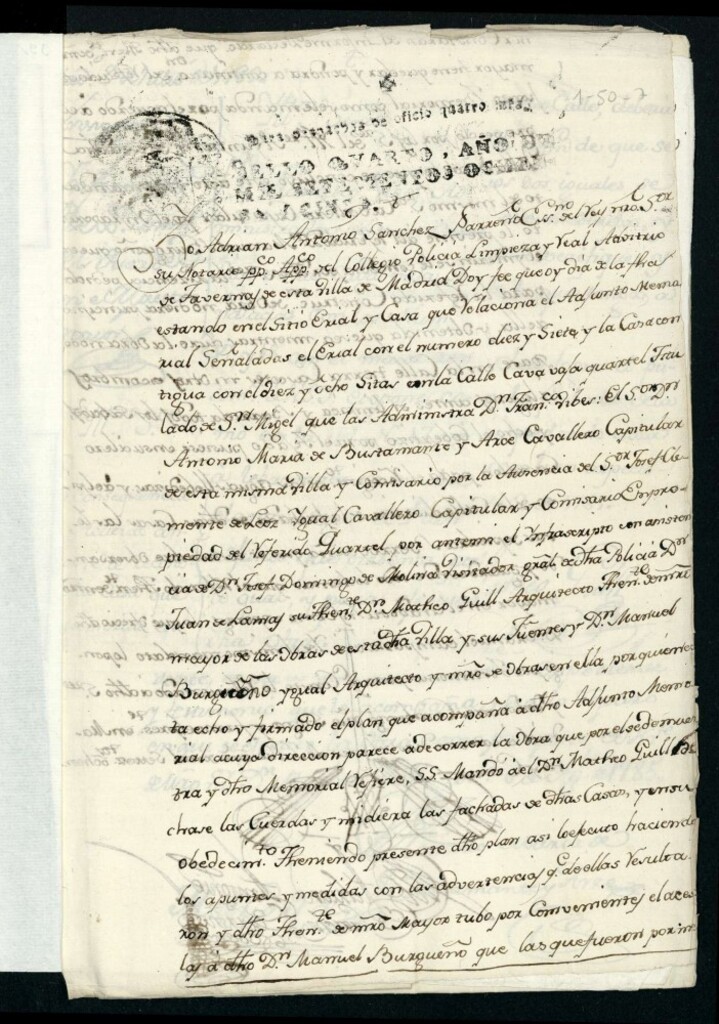 1-50-7
Para despachos de oficio quatro mrs.
SELLO QVARTO, AÑO DE
MIL SETECIENTOS OCHEN
TA Y CINCO.
Yo Adrian Antonio Sanchez Ess.no del Rey nro S.or
su Notario pp.co App.co del Collegio Policia Limpieza y Real Advitrio
de Tavernas de esta Villa de Madrid Doy fee que oy dia de la fha
estando en el Sitio Erial y Casa que Relaciona el Adjunto Memo
rial Señaladas el Erial con el numero diez y Siete, y la Casa con
tigua con el diez y ocho Sitas en la Calle Cava vaja quartel Titu
lado de S.n Migél que las Administra D.n Fran.co Vibes: El S.or D.n
Antonio Maria de Bustamante y Arce Cavallero Capitular
de esta misma Villa y Comisario por la Ausencia del S.or Josef Cle
mente de Leoz Ygual Cavallero Capitular y Comisario En pro-
piedad del Referido Quartel, por antemi el Ynfrascripto con asisten
cia de D.n Josef Domingo de Molina Visitador gral de dha Policia D.n
Juan de Lamas su Then.te D.n Matheo Guill Arquitecto Then.te de mro
mayor de las Obras de esta dha Villa y sus Fuentes y D.n Manuel
Burgueño ygual Arquitecto y mro de obras en ella, por quien es
ta echo y firmado el plan que acompaña à dho Adjunto Memo
rial acuya direccion parece ade correr la obra que por el se demues
tra y dho Memorial Refiere, SS. Mandó à el D.n Matheo Guill
chase las Cuerdas y midiera las fachadas de dhas Casas, y en su
obedecim.to Theniendo presente dho plan asi lo ejecuto haciendo
los apuntes y medidas con las advertencias q.e de ellas Resulta
ron y dho Then.te de mro Mayor tubo por Combenientes el acer
las à dho D.n Manuel Burgueño que las que fueron por me